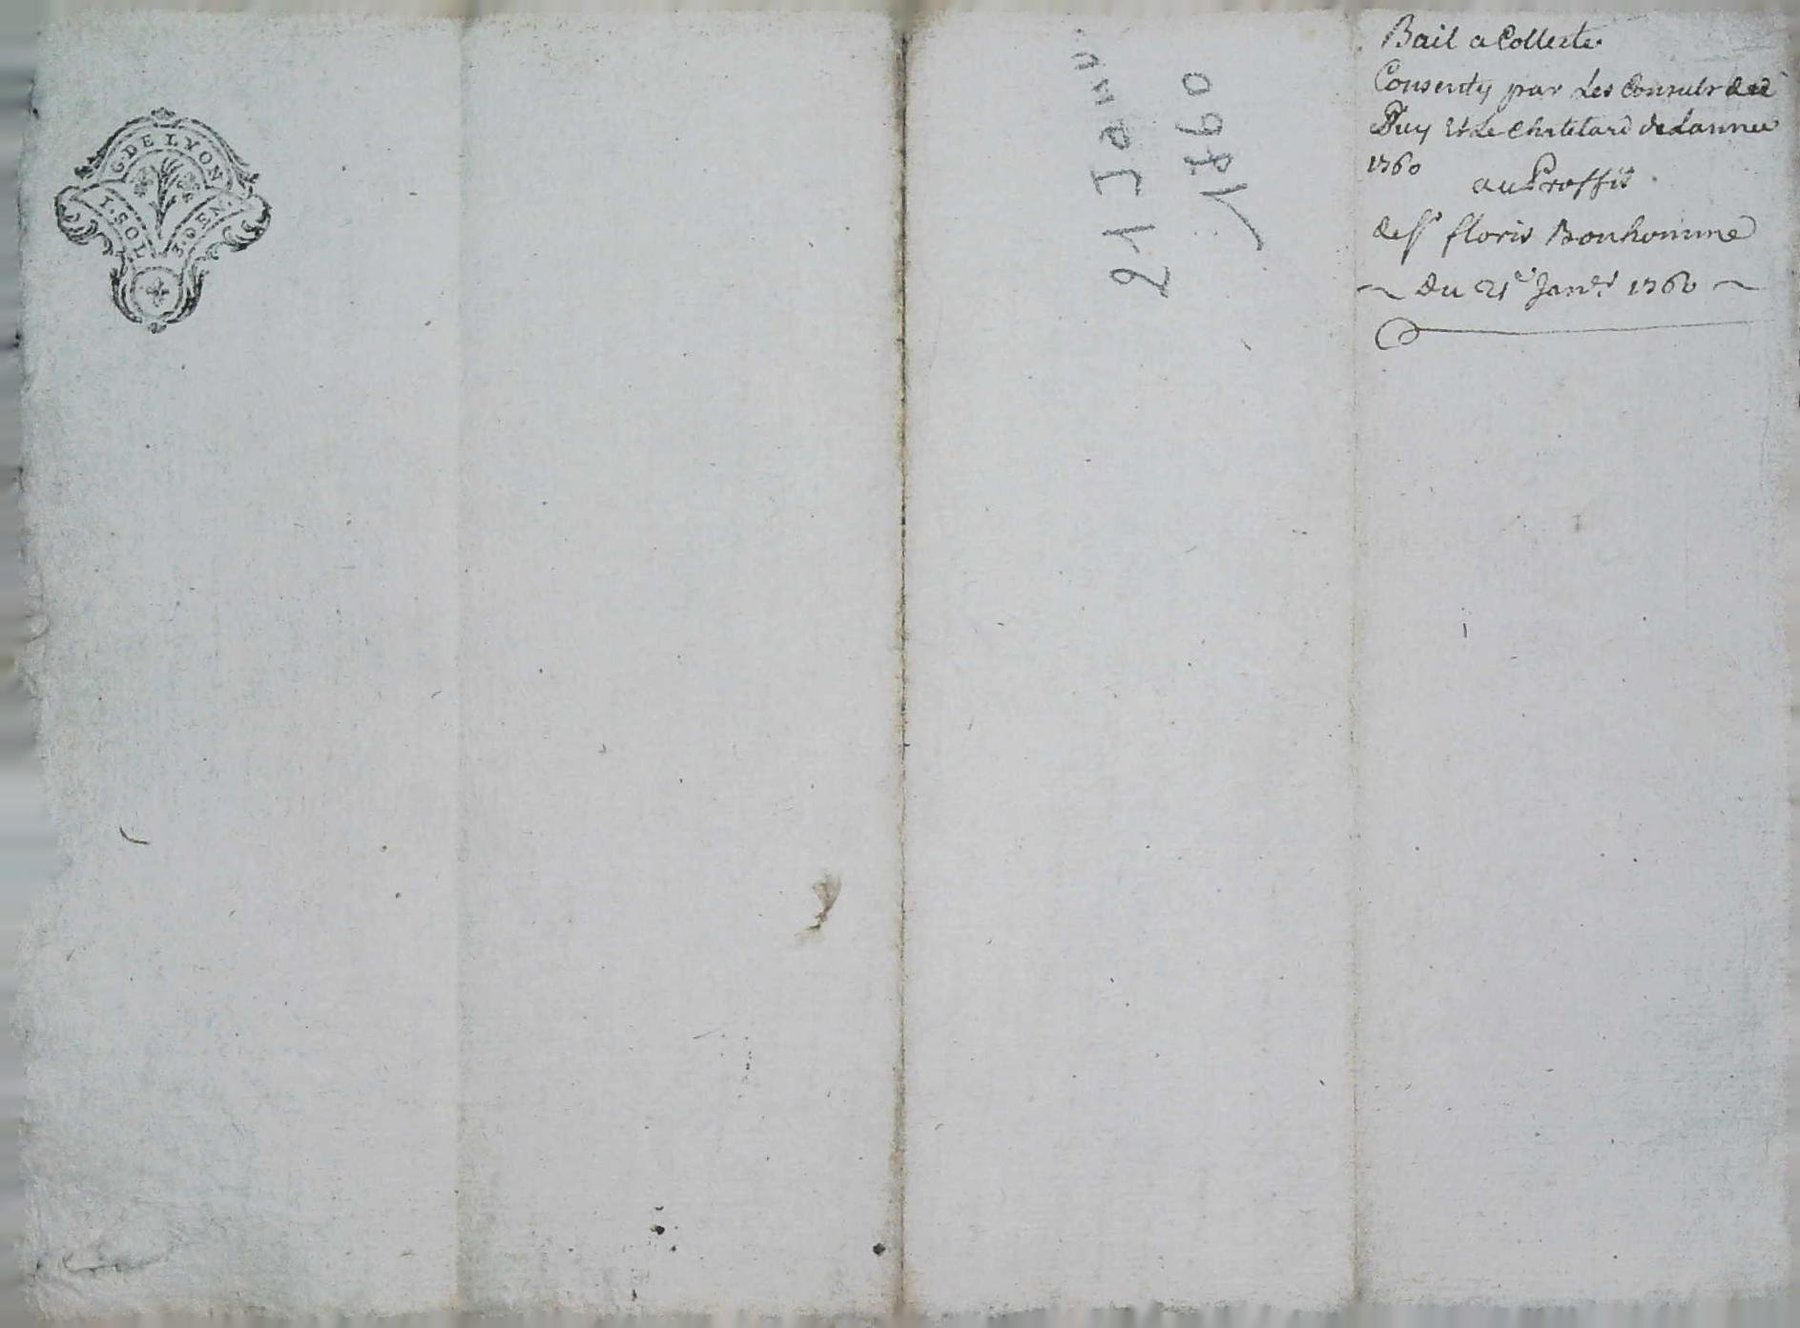 G. DE LYON
I. SOL
21 Janv.
1760
Bail a Collecte
Consenty par Les Consuls de
Puy Et Le Chatelard de Lannee
1760
au Proffit
de Sr floris Bonhomme
du 21e Janer 1760